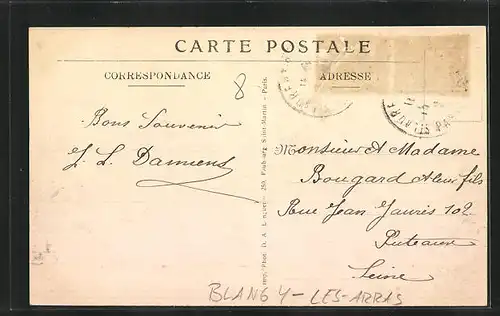 CARTE POSTALE
CORRESPONDANCE
ADRESSE
8
Bons Souvenir
L. L. Damiens
Monsieur A Madame
Bougard & leur fils
Rue Jean Jaurès 102
Puteaux
Seine
Phot. D. A. 250, Faub-urg Saint-Martin - Paris.
BLANGY - LES-ARRAS